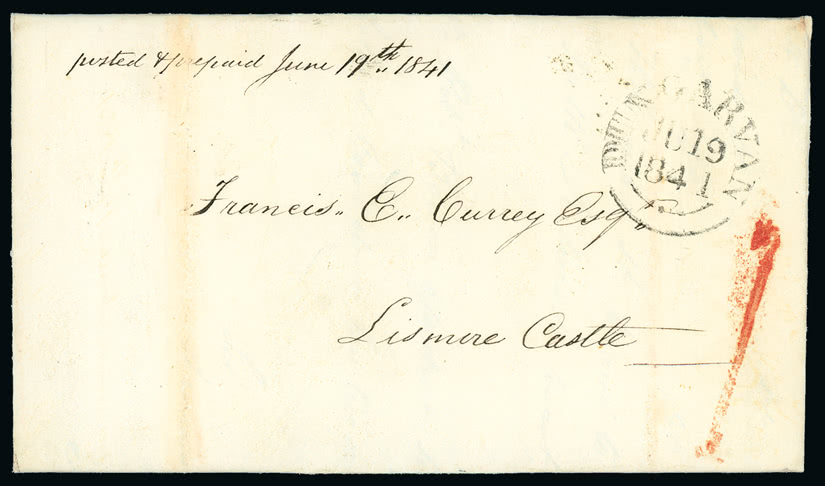 posted & prepaid June 19th 1841
GARVAN
JU 19
1841
Francis.. E.. Currey Esq..
Lismore Castle
1